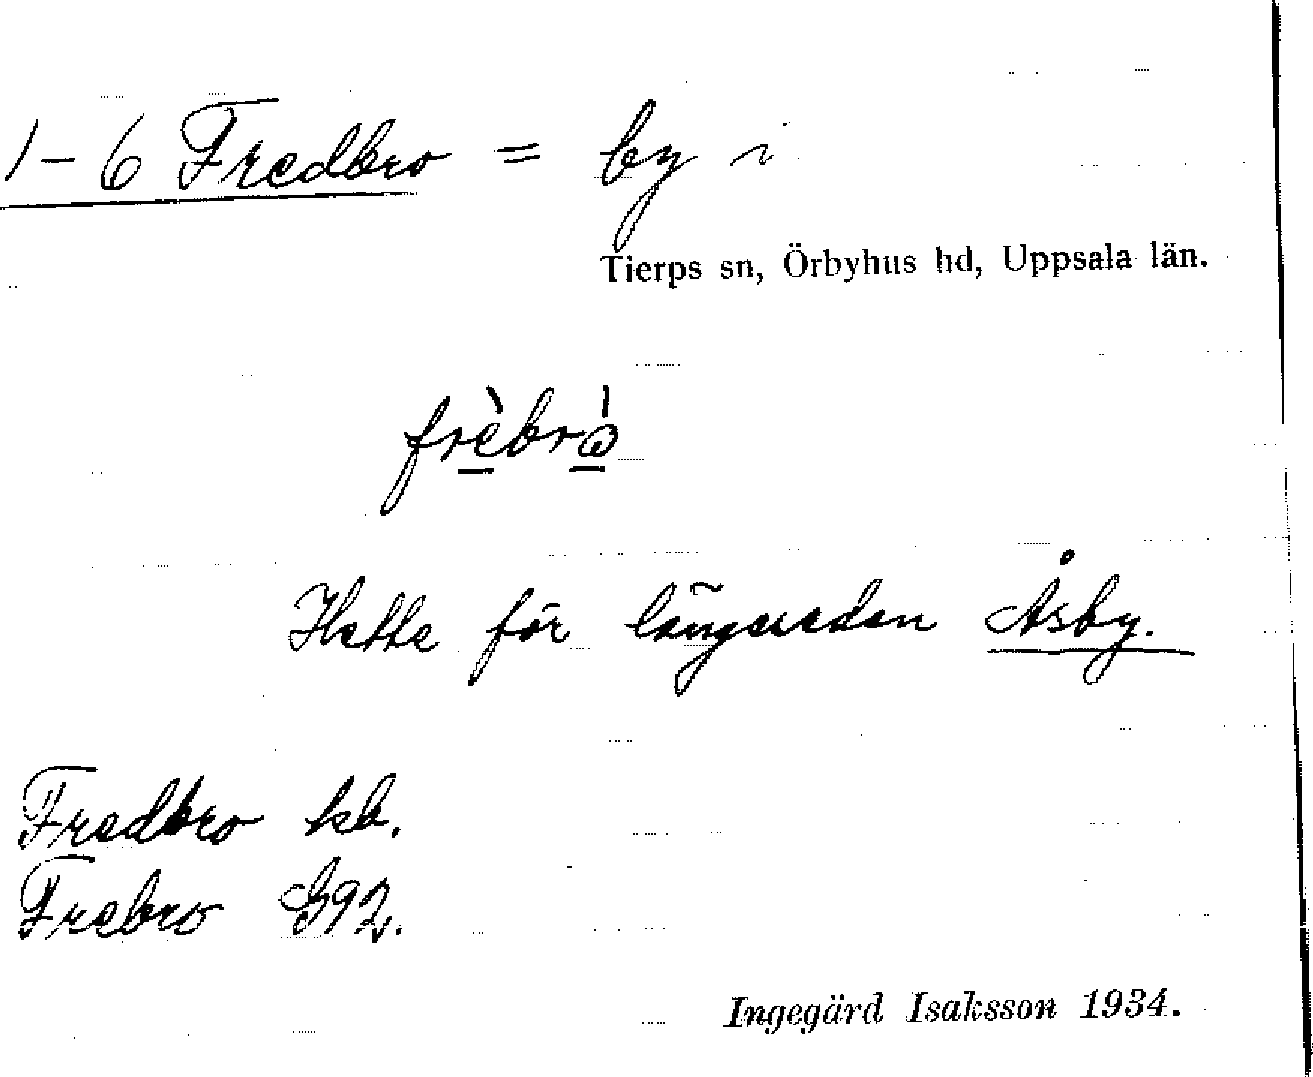 1-6 Fredbro = by i
Tierps sn, Örbyhus hd, Uppsala län.
frèbrò
Hette för längesedan Åsby.
Fredbro kb.
Frebro G92.
Ingegärd Isaksson 1934.